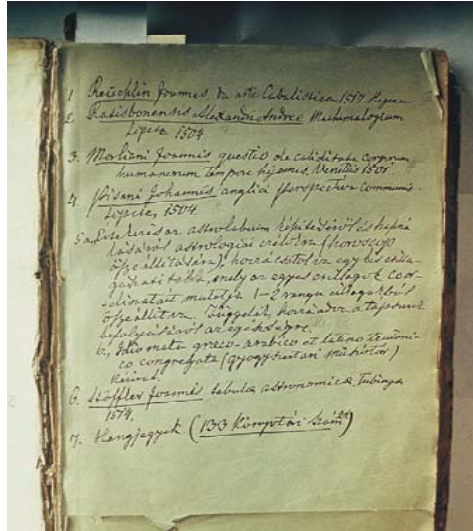 1 Reuchlin Joannes, de arte Cabalistica 1517 Hagenau
2. Ratisbonensis Alexandri Andree Mathemalogium
Lipcse 1504
3. Marliani Joannis questio de caliditate corporum
humanorum tempore hyemis, Venetiis 1501.
4. Pisani Johannis anglici perspectiva communis.
Lipcse, 1504.
5 a, Értekezés az astrolabium készítéséről és hasz
astrologiai célokra (horoscop
összeállítására), horrá csatolva egy kis csilla-
gászati tábla, mely az egyes csillagok Coor-
dinatáit mutatja 1–2 rangu csillagokból
összeállítva. Függelék, horrá adva a
befolyásáról az egészségre.
b, Idiomata greco-arabico et latino
co congregata (gyógyszertani műszótár)
6. Stöffler Joannes tabula astronomica. Tubinga
1514.
7. Hangjegyek (133 Könyvtári szám)